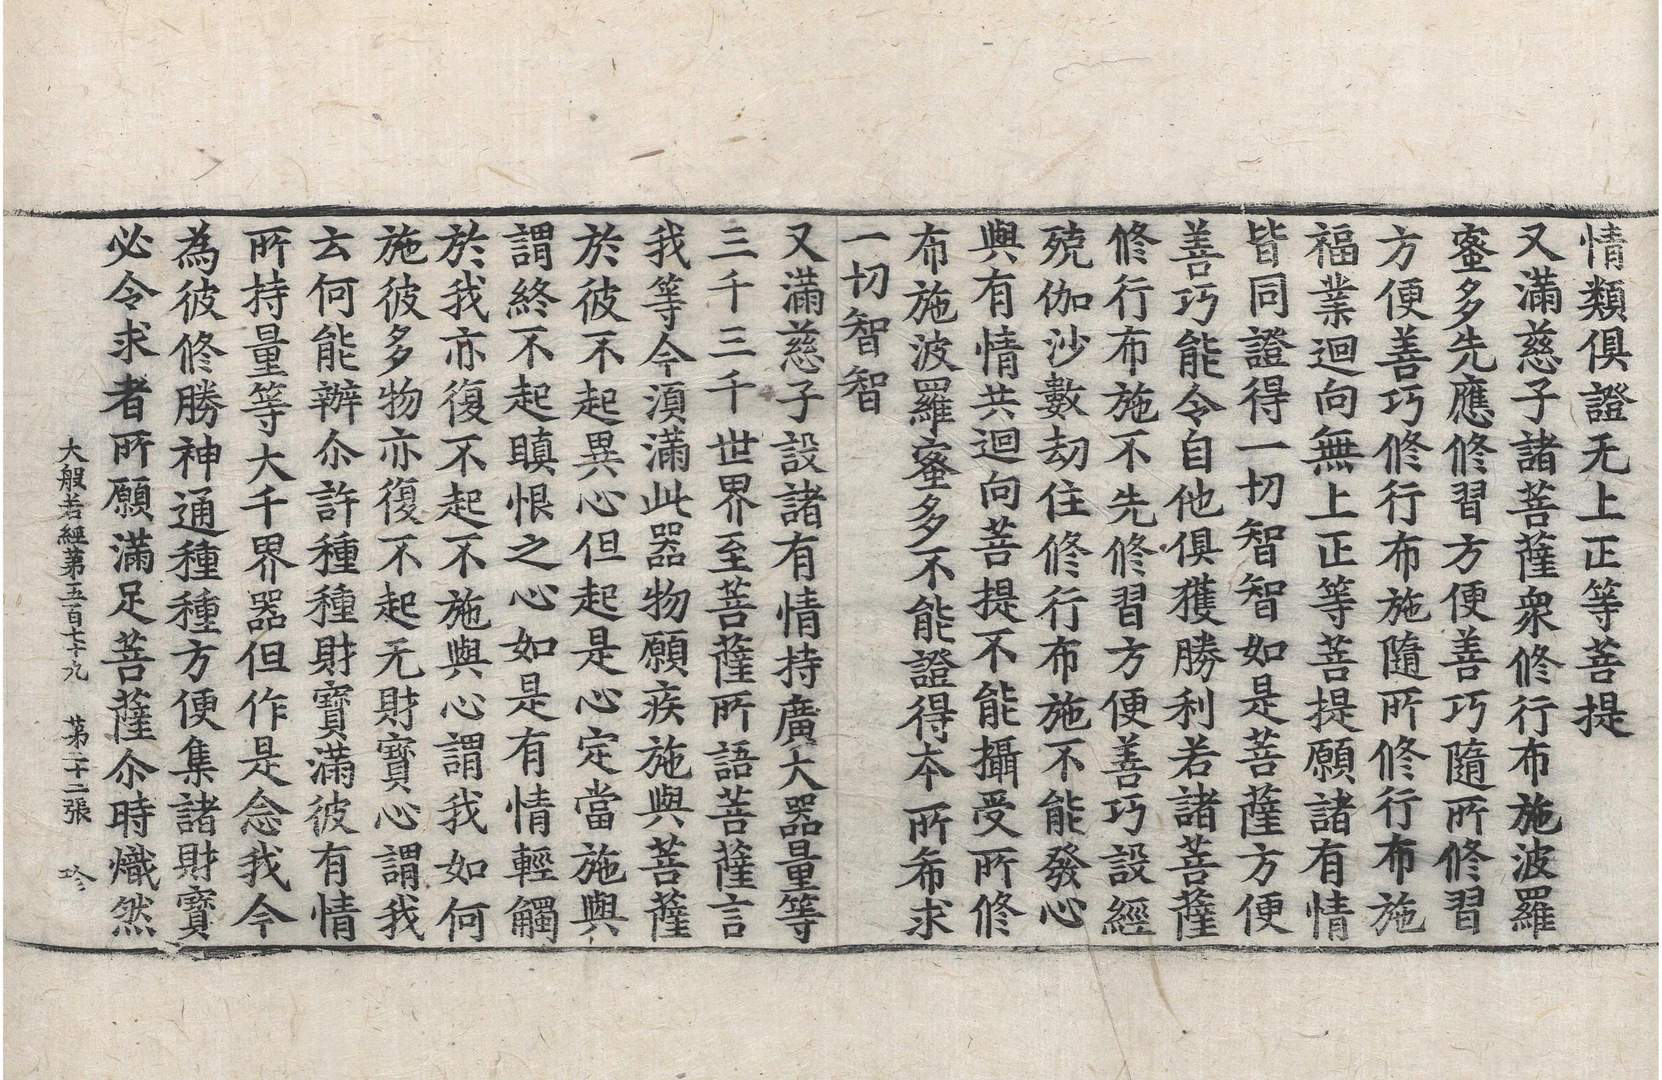 情類俱證无上正等菩提
又滿慈子諸菩薩衆修行布施波羅
蜜多先應修習方便善巧隨所修習
方便善巧修行布施隨所修行布施
福業迴向無上正等菩提願諸有情
皆同證得一切智智如是菩薩方便
善巧能令自他俱獲勝利若諸菩薩
修行布施不先修習方便善巧設經
殑伽沙數劫住修行布施不能發心
與有情共迴向菩提不能攝受所修
布施波羅蜜多不能證得夲所希求
一切智智
又滿慈子設諸有情持廣大器量等
三千三千世界至菩薩所語菩薩言
我等今湏滿此器物願疾施與菩薩
於彼不起異心但起是心定當施與
謂終不起瞋恨之心如是有情輕觸
於我亦復不起不施與心謂我如何
施彼多物亦復不起无財寶心謂我
云何能辦尒許種種財寶滿彼有情
所持量等大千界器但作是念我今
為彼修勝神通種種方便集諸財寶
必令求者所願滿足菩薩尒時熾然
大般若經第五百七十九 第二十二張 珎